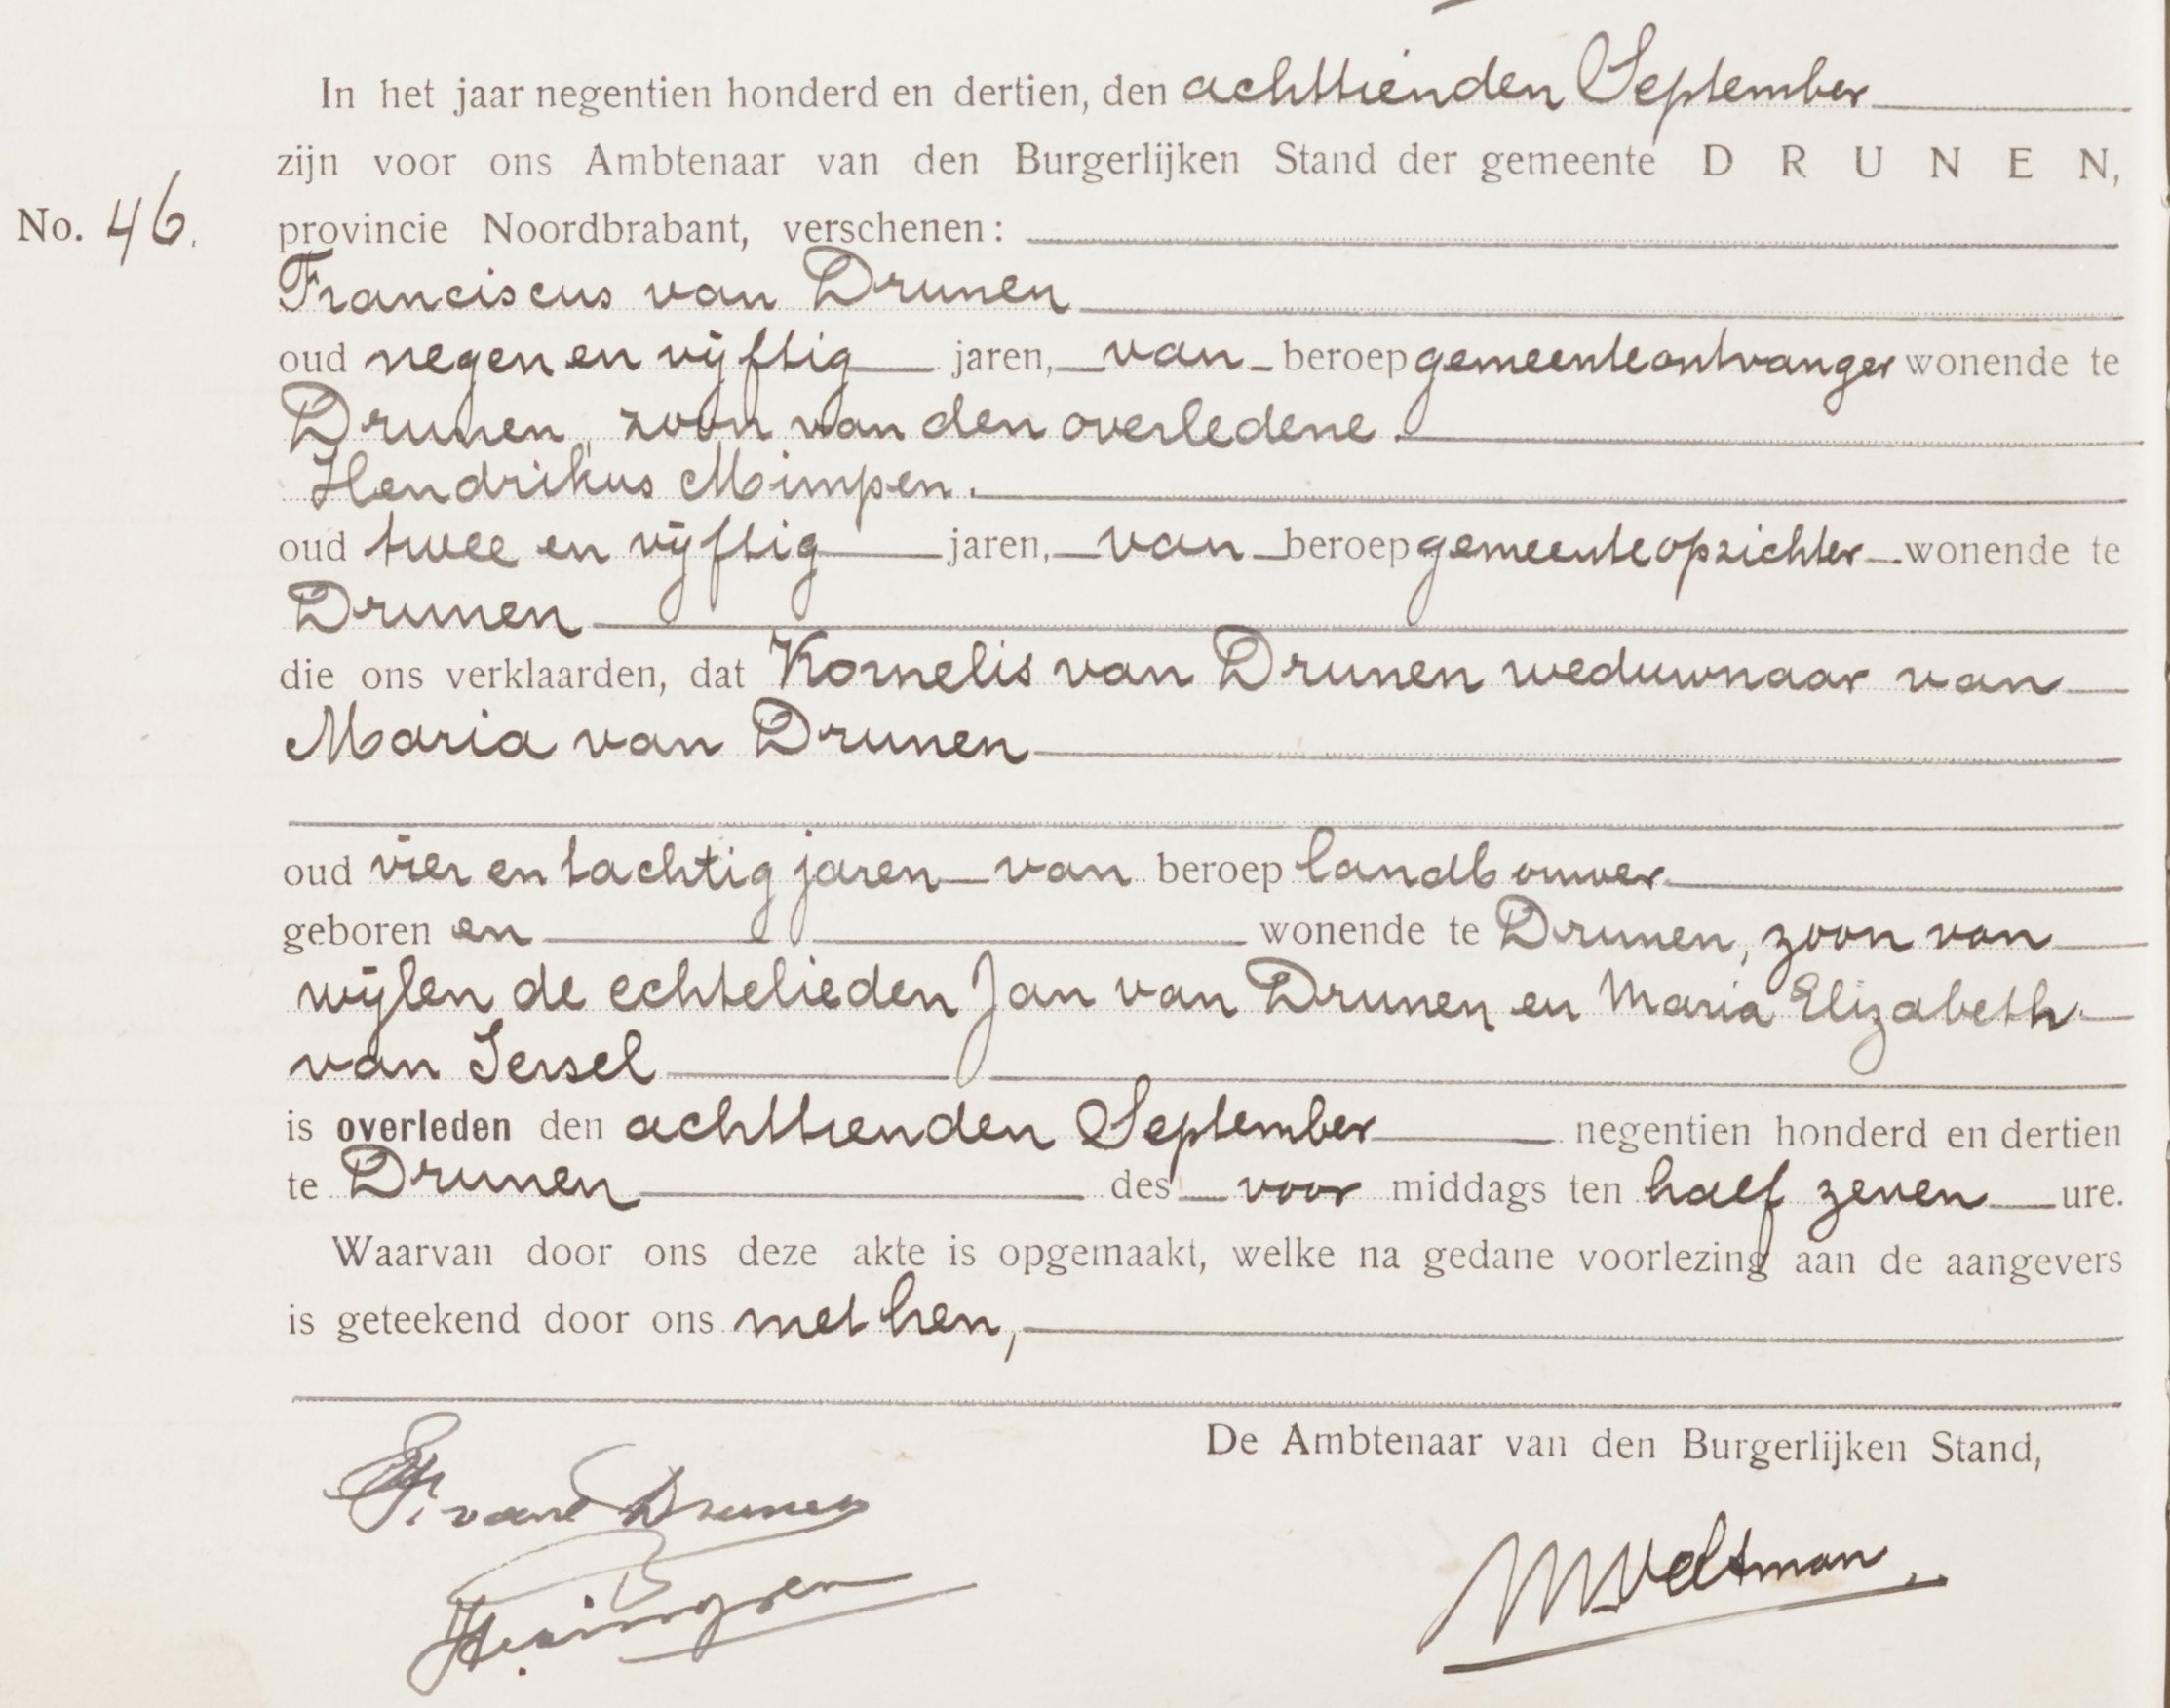 In het jaar negentien honderd en dertien, den achttienden September
zijn voor ons Ambtenaar van den Burgerlijken Stand der gemeente DRUNEN,
No. 46. provincie Noordbrabant, verschenen:
Franciscus van Drunen
oud negen en vijftig jaren, van beroep gemeenteontvanger wonende te
Drunen, zoon van den overledene.
Hendrikus Mimpen.
oud twee en vijftig jaren, van beroep gemeenteopzichter wonende te
Drunen
die ons verklaarden, dat Kornelis van Drunen weduwnaar van
Maria van Drunen
oud vier en tachtig jaren van beroep landbouwer
geboren en wonende te Drunen, zoon van
wijlen de echtelieden Jan van Drunen en Maria Elizabeth
van Iersel
is overleden den achttienden September negentien honderd en dertien
te Drunen des voor middags ten half zeven ure.
Waarvan door ons deze akte is opgemaakt, welke na gedane voorlezing aan de aangevers
is geteekend door ons met hen,
De Ambtenaar van den Burgerlijken Stand,
F. van Drunen
H Mimpen
M Veltman